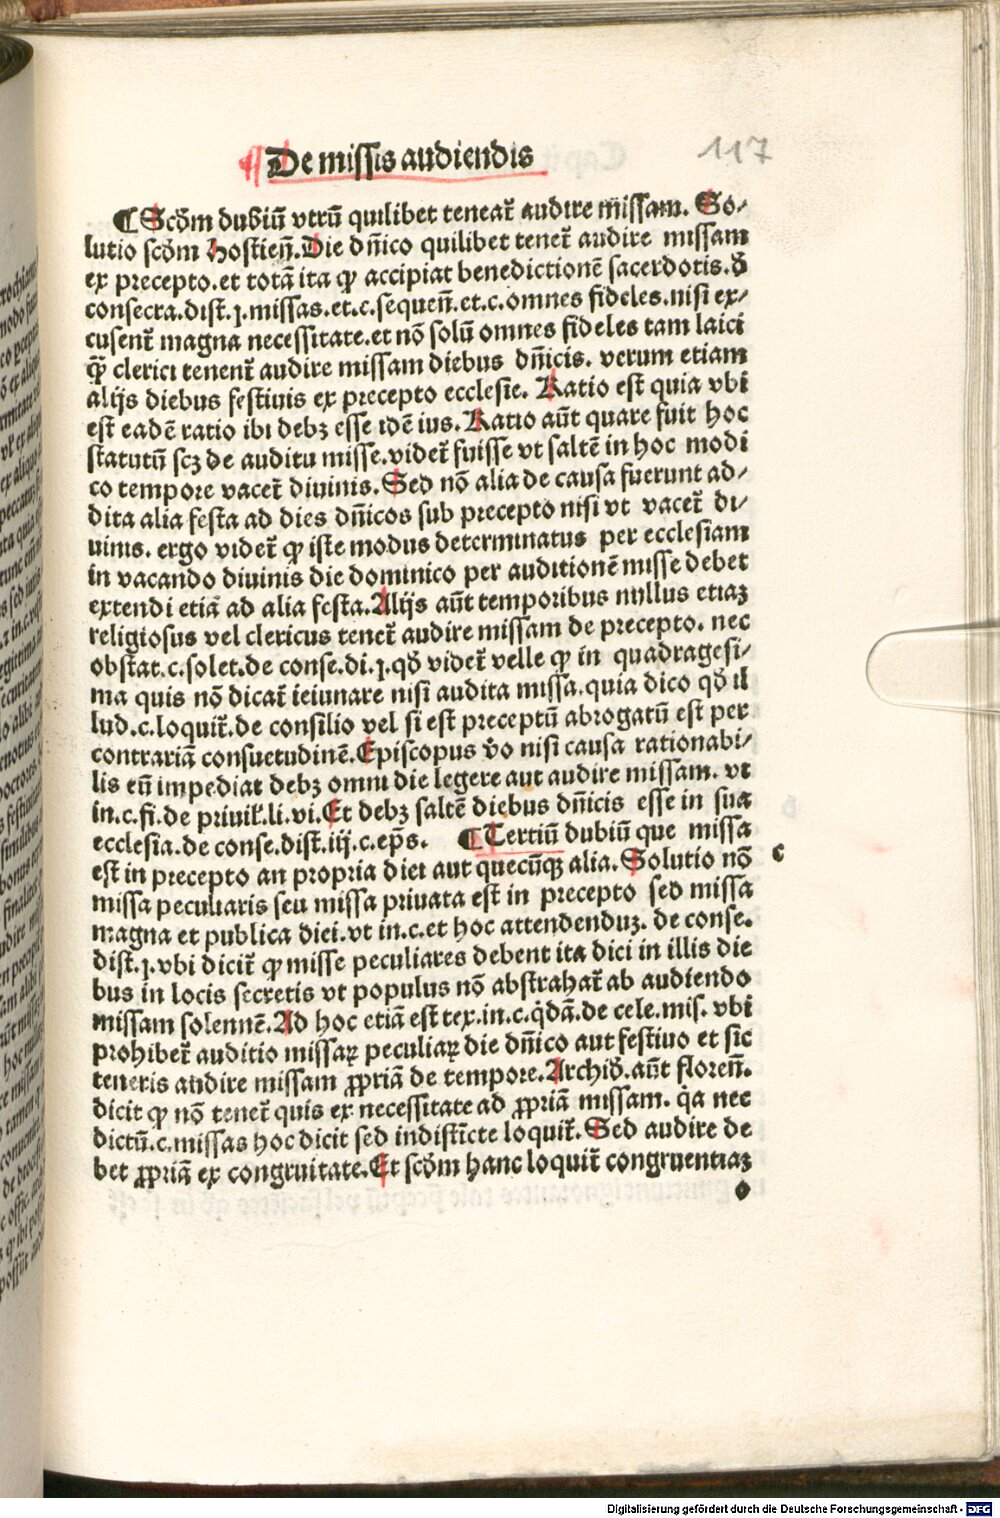 De missis audiendis
117
¶ Scd̄m dubiū vtrū quilibet teneat᷑ audire missam. So⸗
lutio scd̄m hostien̄. Die dn̄ico quilibet tenet᷑ audire missam
ex precepto. et totā ita ꝙ accipiat benedictionē sacerdotis. d̄
consecra. dist. j. missas. et. c. sequen̄. et. c. omnes fideles. nisi ex⸗
cusent᷑ magna necessitate. et nō solū omnes fideles tam laici
q̄ꝫ clerici tenent᷑ audire missam diebus dn̄icis. verum etiam
alijs diebus festiuis ex precepto ecclesie. Ratio est quia vbi
est eadē ratio ibi debꝫ esse idē ius. Ratio aūt quare fuit hoc
statutū scꝫ de auditu misse. videt᷑ fuisse vt saltē in hoc modi
co tempore vacet᷑ diuinis. Sed nō alia de causa fuerunt ad⸗
dita alia festa ad dies dn̄icos sub precepto nisi vt vacet᷑ di⸗
uinis. ergo videt᷑ ꝙ iste modus determinatus per ecclesiam
in vacando diuinis die dominico per auditionē misse debet
extendi etiā ad alia festa. Alijs aūt temporibus nullus etiaꝫ
religiosus vel clericus tenet᷑ audire missam de precepto. nec
obstat. c. solet. de conse. di. j. qd̄ videt᷑ velle ꝙ in quadragesi⸗
ma quis nō dicat᷑ ieiunare nisi audita missa. quia dico qd̄ il
lud. c. loquit᷑. de consilio vel si est preceptū abrogatū est per
contrariā consuetudinē. Episcopus v̄o nisi causa rationabi⸗
lis eū impediat debꝫ omni die legere aut audire missam. vt
in. c. fi. de priuil̕. li. vi. Et debꝫ saltē diebus dn̄icis esse in sua
ecclesia. de conse. dist. iij. c. ep̄s. ¶ Tertiū dubiū que missa
c
est in precepto an propria diei aut quecūqꝫ alia. Solutio nō
missa peculiaris seu missa priuata est in precepto sed missa
magna et publica diei. vt in. c. et hoc attendenduꝫ. de conse.
dist. j. vbi dicit᷑ ꝙ misse peculiares debent ita dici in illis die
bus in locis secretis vt populus nō abstrahat᷑ ab audiendo
missam solennē. Ad hoc etiā est tex. in. c. q̇dā. de cele. mis. vbi
prohibet᷑ auditio missaꝝ peculiaꝝ die dn̄ico aut festiuo et sic
teneris audire missam ꝓpriā de tempore. Archid̄. aūt floren̄.
dicit ꝙ nō tenet᷑ quis ex necessitate ad ꝓpriā missam. q̇a nec
dictū. c. missas hoc dicit sed indistīcte loquit᷑. Sed audire de
bet ꝓpriā ex congruitate. Et scd̄m hanc loquit᷑ congruentiaꝫ
Digitalisierung gefördert durch die Deutsche Forschungsgemeinschaft - DFG